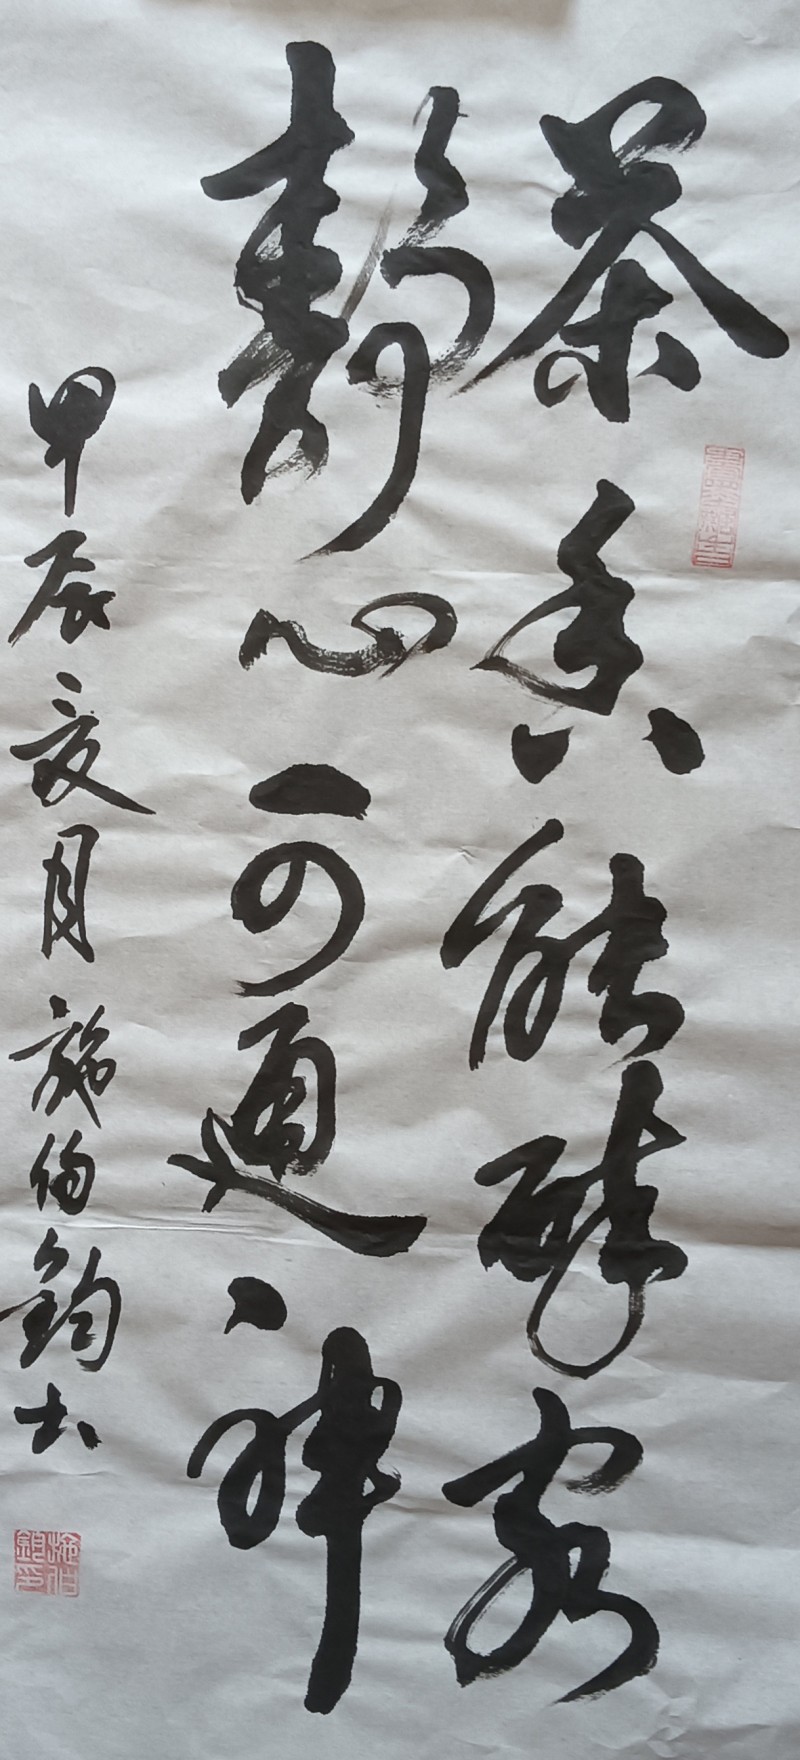 茶香能醉客
静心可通神
甲辰夏月施伯钧书